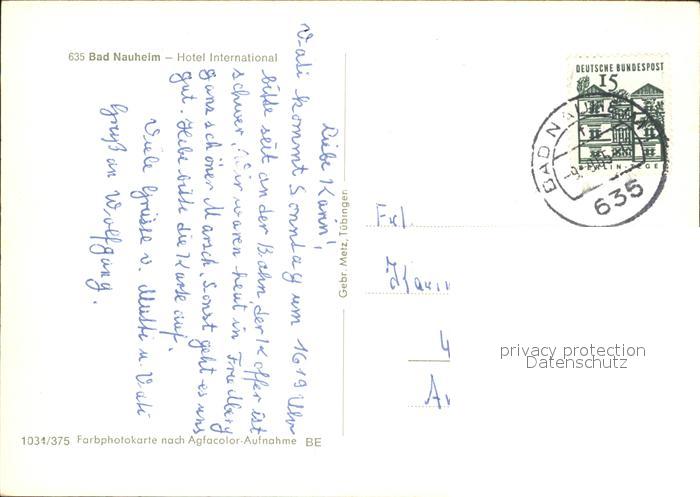 635 Bad Nauheim — Hotel International
Liebe Karin!
Vati kommt Sonntag um 16 19 Uhr
bitte seit an der Bahn, der Koffer ist
schwer. Wir waren heut in Friedberg
ganz schöner Marsch. Sonst geht es uns
gut. Hebe bitte die Karte auf.
Viele Grüsse v. Mutti u. Vati
Gruß an Wolfgang.
Gebr. Metz, Tübingen
DEUTSCHE BUNDESPOST
15
BERLIN-TEGEL
BAD NAUHEIM
635
Frl.
4
privacy protection
Datenschutz
1031/375 Farbphotokarte nach Agfacolor-Aufnahme BE